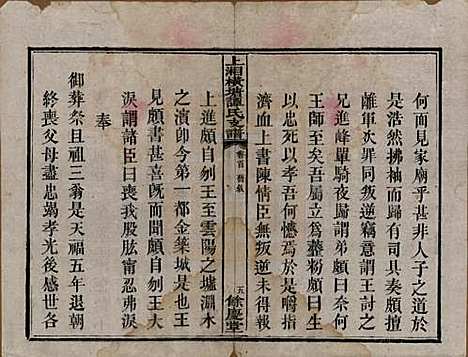 何而見家廟乎甚非人子之道於
是浩然拂袖而歸有司具奏頗擅
離軍次罪同叛逆竄意謂王討之
兄進峰單騎夜歸謂弟頗曰奈何
王師至矣吾屬立爲虀粉頗曰兄
以忠死以孝吾何憾焉於是嚙指
濟血上書陳情臣無叛逆未得報
上湘橫塘譚氏支譜
卷首
五
餘慶堂
上進頗自刎王至雲陽之墟淵水
之濱卽今第一都金築城是也王
見頗書甚喜旣而聞頗自刎王揮
淚謂諸臣曰喪我股肱甯忍弗淚
奉
御葬祭旦祖三翁是天福五年退朝
終喪父母盡忠竭孝光後感世各